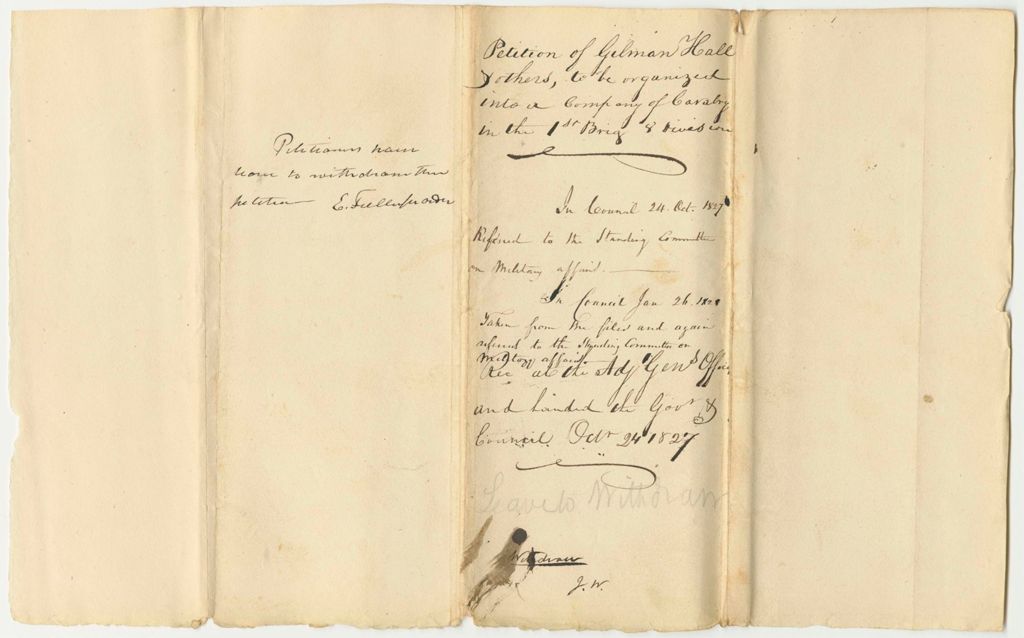 Petitioners have
leave to withdraw their
petition E. Fuller per order
Petition of Gilman Hall
& others, to be organized
into a Company of Cavalry
in the 1st Brig 8 Division
In Council 24. Oct. 1827
Referred to the Standing Committee
on Military affairs.
In Council Jan 26. 1828
Taken from the files and again
referred to the Standing Committee on
Military affairs.
Rec at the Adj Genls Office
and handed the Govr &
Council. Octr 24 1827
Leave to Withdraw
Withdraw
J. W.